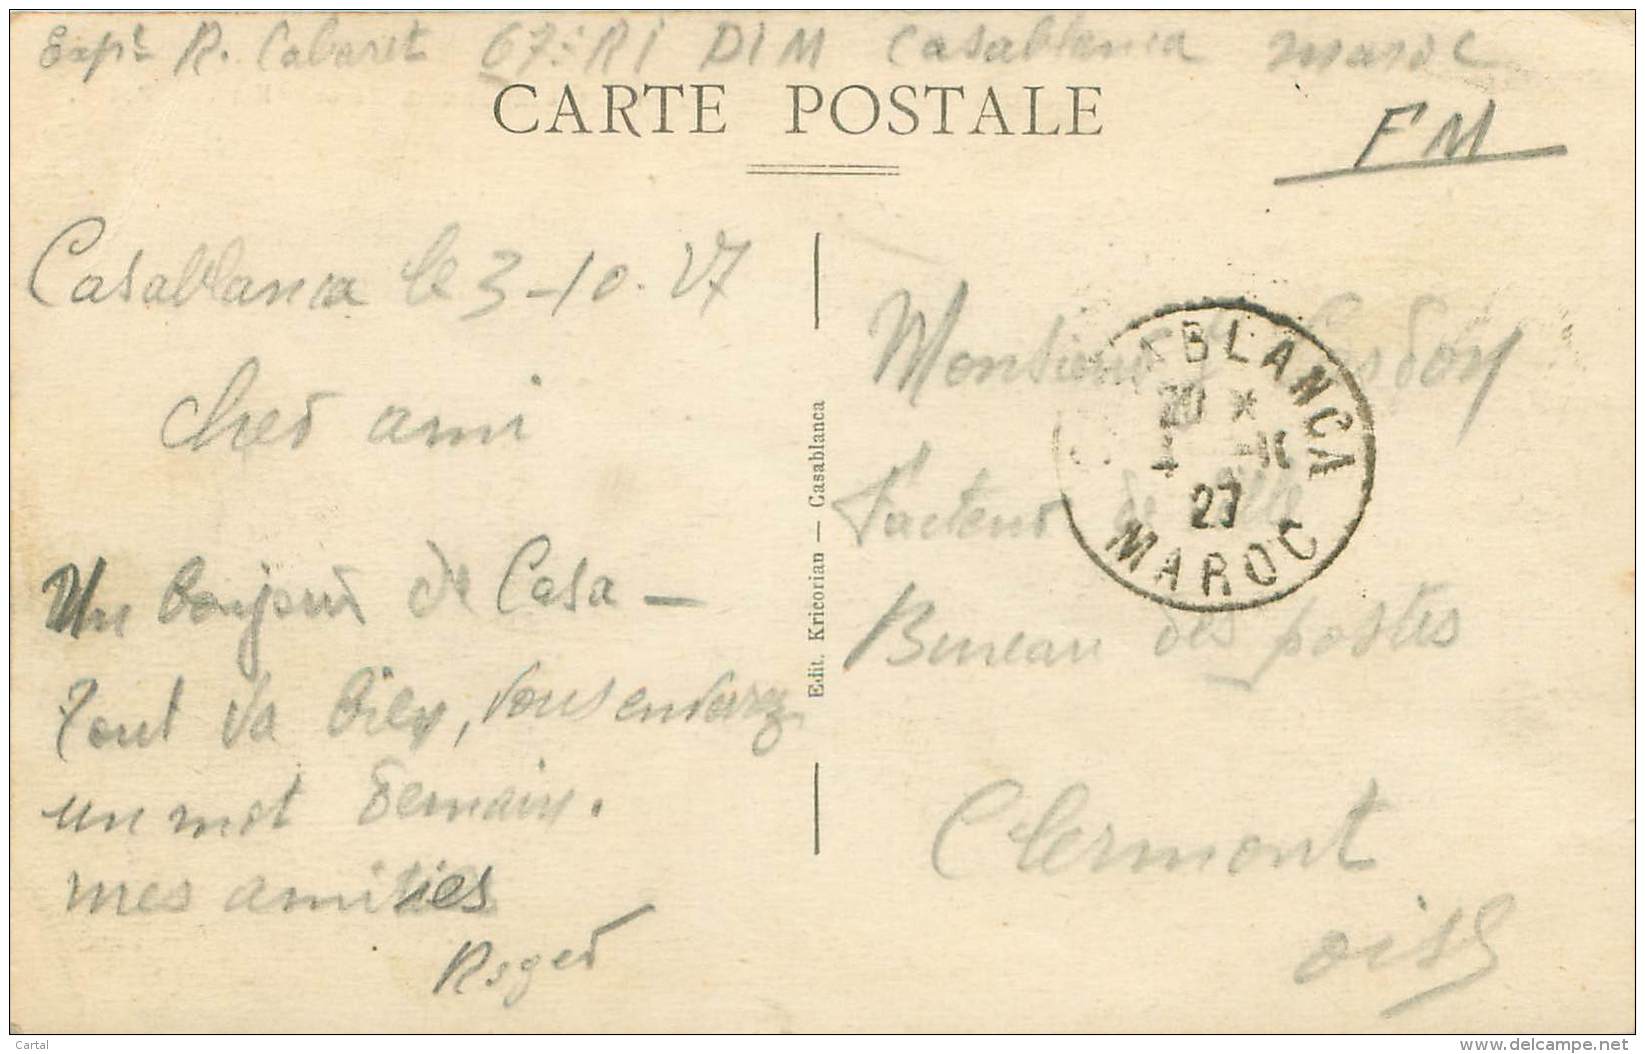 Expr R. Cabaret 67e RI DIM Casablanca Maroc
CARTE POSTALE
FM
Casablanca le 3-10.27
cher ami
Un bonjour de Casa —
Tout va bien, vous enverrez
un mot demain.
mes amitiés
Roger
Edit. Kricorian — Casablanca
Monsieur
Facteur de ville
Bureau des postes
Clermont
oise
CASABLANCA
20 *
4 -10
27
MAROC
Cartal
www.delcampe.net